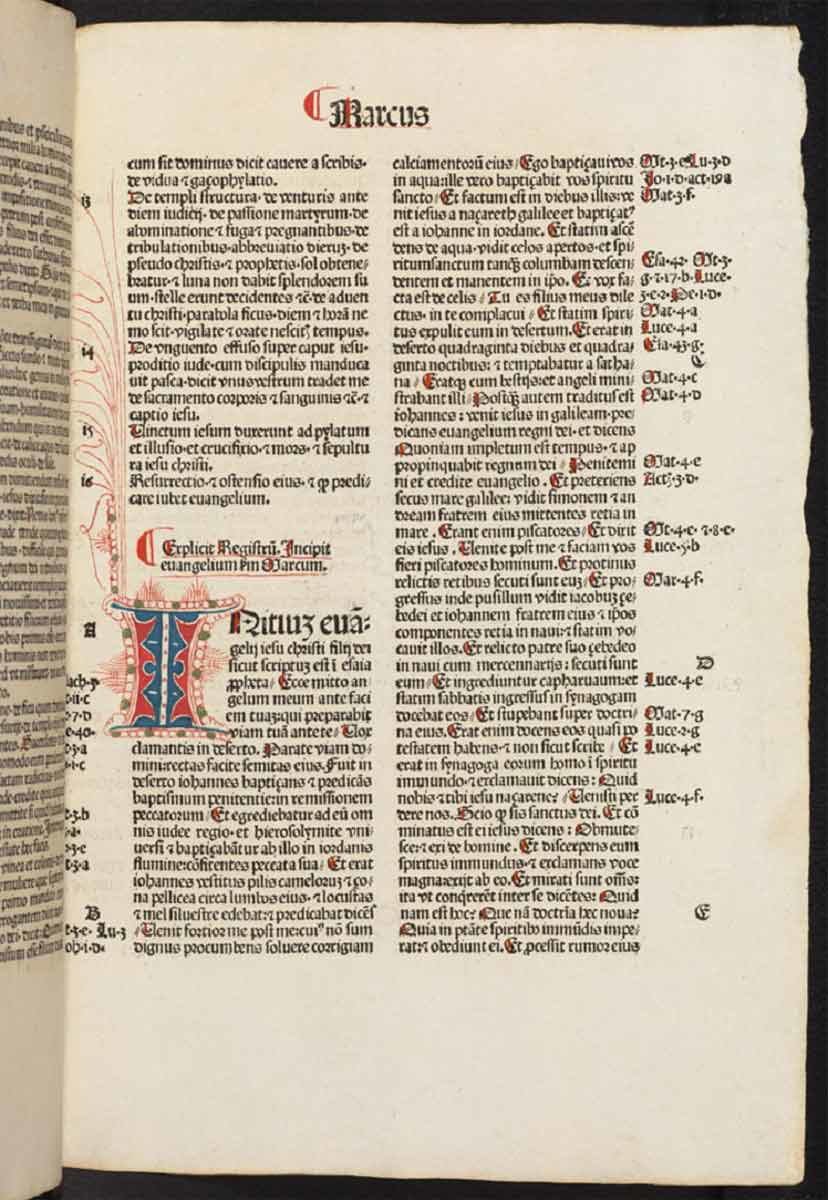 Marcus
cum sit dominus dicit cavere a scribis·
de vidua & gaçophylatio.
i3
De templi structura· de venturis ante
diem iudicij· de passione martyrum· de
abominatione & fuga & pregnantibus· de
tribulationibus· abbreviatio dieruz· de
pseudo christis & prophetis· sol obtene-
bratur· & luna non dabit splendorem su
um· stelle erunt decidentes &c̄· de aduen
tu christi· parabola ficus· diem & horā ne
mo scit· vigilate & orate nescit̄ tempus.
i4
De vnguento effuso super caput iesu·
proditio iude· cum discipulis manduca
uit pasca· dicit vnus vestrum tradet me
de sacramento corporis & sanguinis &c̄· &
captio iesu.
i5
Uinctum iesum duxerunt ad pylatum
et illusio· et crucifixio· & mors· & sepultu
ra iesu christi.
i6
Resurrectio· & ostensio eius· & ꝙ predi-
care iubet euangelium.
Explicit Registrū. Incipit
euangelium ẜm Marcum.
A
INitiuz euā-
gelij iesu christi filij dei
sicut scriptuz est ī esaia
ꝓpheta· Ecce mitto an-
gelum meum ante faci
em tuaz: qui preparabit
viam tuā ante te· Uox
clamantis in deserto. Parate viam do-
mini: rectas facite semitas eius. Fuit in
deserto iohannes baptiçans & predicās
baptismum penitentie: in remissionem
peccatorum· Et egrediebatur ad eū om
nis iudee regio· et hierosolymite vni-
uersi & baptiçabāt̄ ab illo in iordanis
flumine: cōfitentes peccata sua· Et erat
iohannes vestitus pilis cameloruz & ço-
na pellicea circa lumbos eius· & locustas
B
& mel siluestre edebat· & predicabat dicēs
Uenit fortior me post me: cuiꝰ nō sum
dignus procumbens soluere corrigiam
calciamentorū eius· Ego baptiçaui vos
in aqua: ille vero baptiçabit vos spiritu
sancto· Et factum est in diebus illis: ve
nit iesus a naçareth galilee: et baptiçatꝰ
est a iohanne in iordane. Et statim ascē
dens de aqua· vidit celos apertos· et spi-
ritumsanctum tanqꝫ columbam descen
dentem et manentem in ip̄o. Et vox fa-
cta est de celis· Tu es filius meus dile
ctus· in te complacui· Et statim spiri-
tus expulit eum in desertum. Et erat in
deserto quadraginta diebus et quadra-
ginta noctibus: & temptabatur a satha-
na· Eratqꝫ cum bestijs: et angeli mini
strabant illi· Postqꝫ autem traditus est
iohannes: venit iesus in galileam· pre-
dicans euangelium regni dei· et dicens
Quoniam impletum est tempus· & ap
propinquabit regnum dei· Penitemi
ni et credite euangelio· Et preteriens
secus mare galilee: vidit simonem & an
dream fratrem eius mittentes retia in
mare· Erant enim piscatores· Et dixit
eis iesus· Uenite post me & faciam vos
fieri piscatores hominum. Et protinus
relictis retibus secuti sunt euz· Et pro-
gressus inde pusillum vidit iacobuz çe-
bedei et iohannem fratrem eius & ip̄os
componentes retia in naui: & statim vo-
cauit illos. Et relicto patre suo çebedeo
in naui cum mercennarijs: secuti sunt
eum· Et ingrediuntur capharnaum: et
statim sabbatis ingressus in synagogam
docebat eos· Et stupebant super doctri-
na eius. Erat enim docens eos quasi po
testatem habens· & non sicut scribe· Et
erat in synagoga eorum homo ī spiritu
immundo· & exclamauit dicens: Quid
nobis & tibi iesu naçarene? Uenisti per
dere nos. Scio ꝙ sis sanctus dei. Et cō
minatus est ei iesus dicens: Obmute-
sce: & exi de homine. Et discerpens eum
spiritus immundus· & exclamans voce
magna: exijt ab eo. Et mirati sunt om̄s:
ita vt conq̄rerēt inter se dicētes: Quid
nam est hoc? Que nā doctrīa hec noua?
Quia in ptāte spiritibꝰ immūdis impe-
rat: & obediunt ei. Et ꝓcessit rumor eius
Mat·3·e Lu·3·d
Io·1·d· act·19a
Mat·3·f·
Esa·42· Mt·3·
g·&·17·b· Luce·
3·e·2·Pe·1·d·
Mat·4·a
Luce·4·a
Esa·43·g·
C
Mat·4·c
Mat·4·d
Mat·4·e
Act·3·d·
Mt·4·e·&·8·c·
Luce·5·b
Mat·4·f·
D
Luce·4·e
Mat·7·g
Luce·2·g
Luce·4·e
Luce·4·f·
E